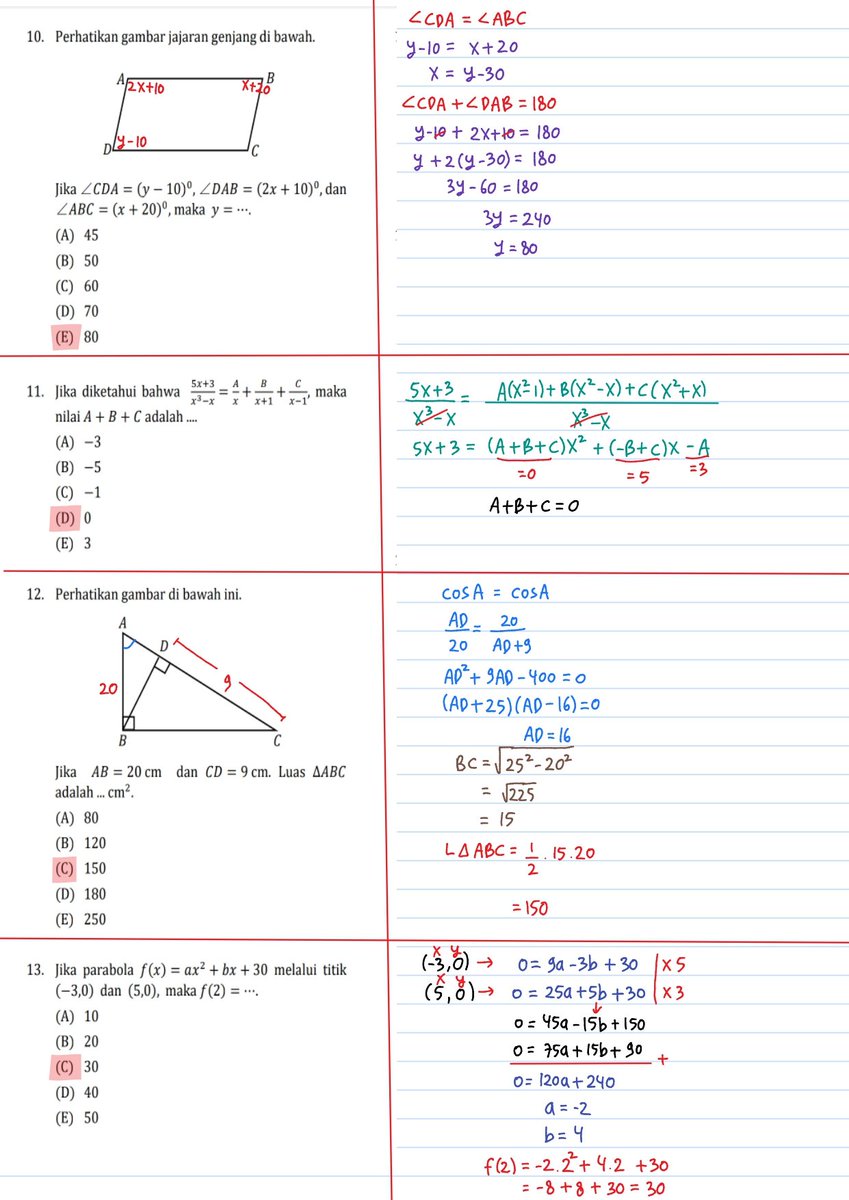 10. Perhatikan gambar jajaran genjang di bawah.
A
B
2x+10
x+20
y-10
D
C
Jika ∠CDA = (y − 10)⁰, ∠DAB = (2x + 10)⁰, dan
∠ABC = (x + 20)⁰, maka y = ⋯.
(A) 45
(B) 50
(C) 60
(D) 70
(E) 80
∠CDA = ∠ABC
y-10 = x+20
x = y-30
∠CDA + ∠DAB = 180
y-10 + 2x+10 = 180
y + 2(y-30) = 180
3y - 60 = 180
3y = 240
y = 80
11. Jika diketahui bahwa (5x+3)/(x³−x) = A/x + B/(x+1) + C/(x−1), maka
nilai A + B + C adalah ....
(A) −3
(B) −5
(C) −1
(D) 0
(E) 3
(5x+3)/(x³-x) = (A(x²-1)+B(x²-x)+C(x²+x))/(x³-x)
5x+3 = (A+B+C)x² + (-B+C)x - A
=0 =5 =3
A+B+C = 0
12. Perhatikan gambar di bawah ini.
A
D
20
9
B
C
Jika AB = 20 cm dan CD = 9 cm. Luas ΔABC
adalah ... cm².
(A) 80
(B) 120
(C) 150
(D) 180
(E) 250
cos A = cos A
AD/20 = 20/(AD+9)
AD² + 9AD - 400 = 0
(AD+25)(AD-16)=0
AD = 16
BC = √(25² - 20²)
= √225
= 15
LΔABC = 1/2 . 15 . 20
= 150
13. Jika parabola f(x) = ax² + bx + 30 melalui titik
(−3,0) dan (5,0), maka f(2) = ⋯.
(A) 10
(B) 20
(C) 30
(D) 40
(E) 50
x y
(-3,0) → 0 = 9a - 3b + 30 | x5
x y
(5,0) → 0 = 25a + 5b + 30 | x3
↓
0 = 45a - 15b + 150
0 = 75a + 15b + 90
+
0 = 120a + 240
a = -2
b = 4
f(2) = -2.2² + 4.2 + 30
= -8 + 8 + 30 = 30